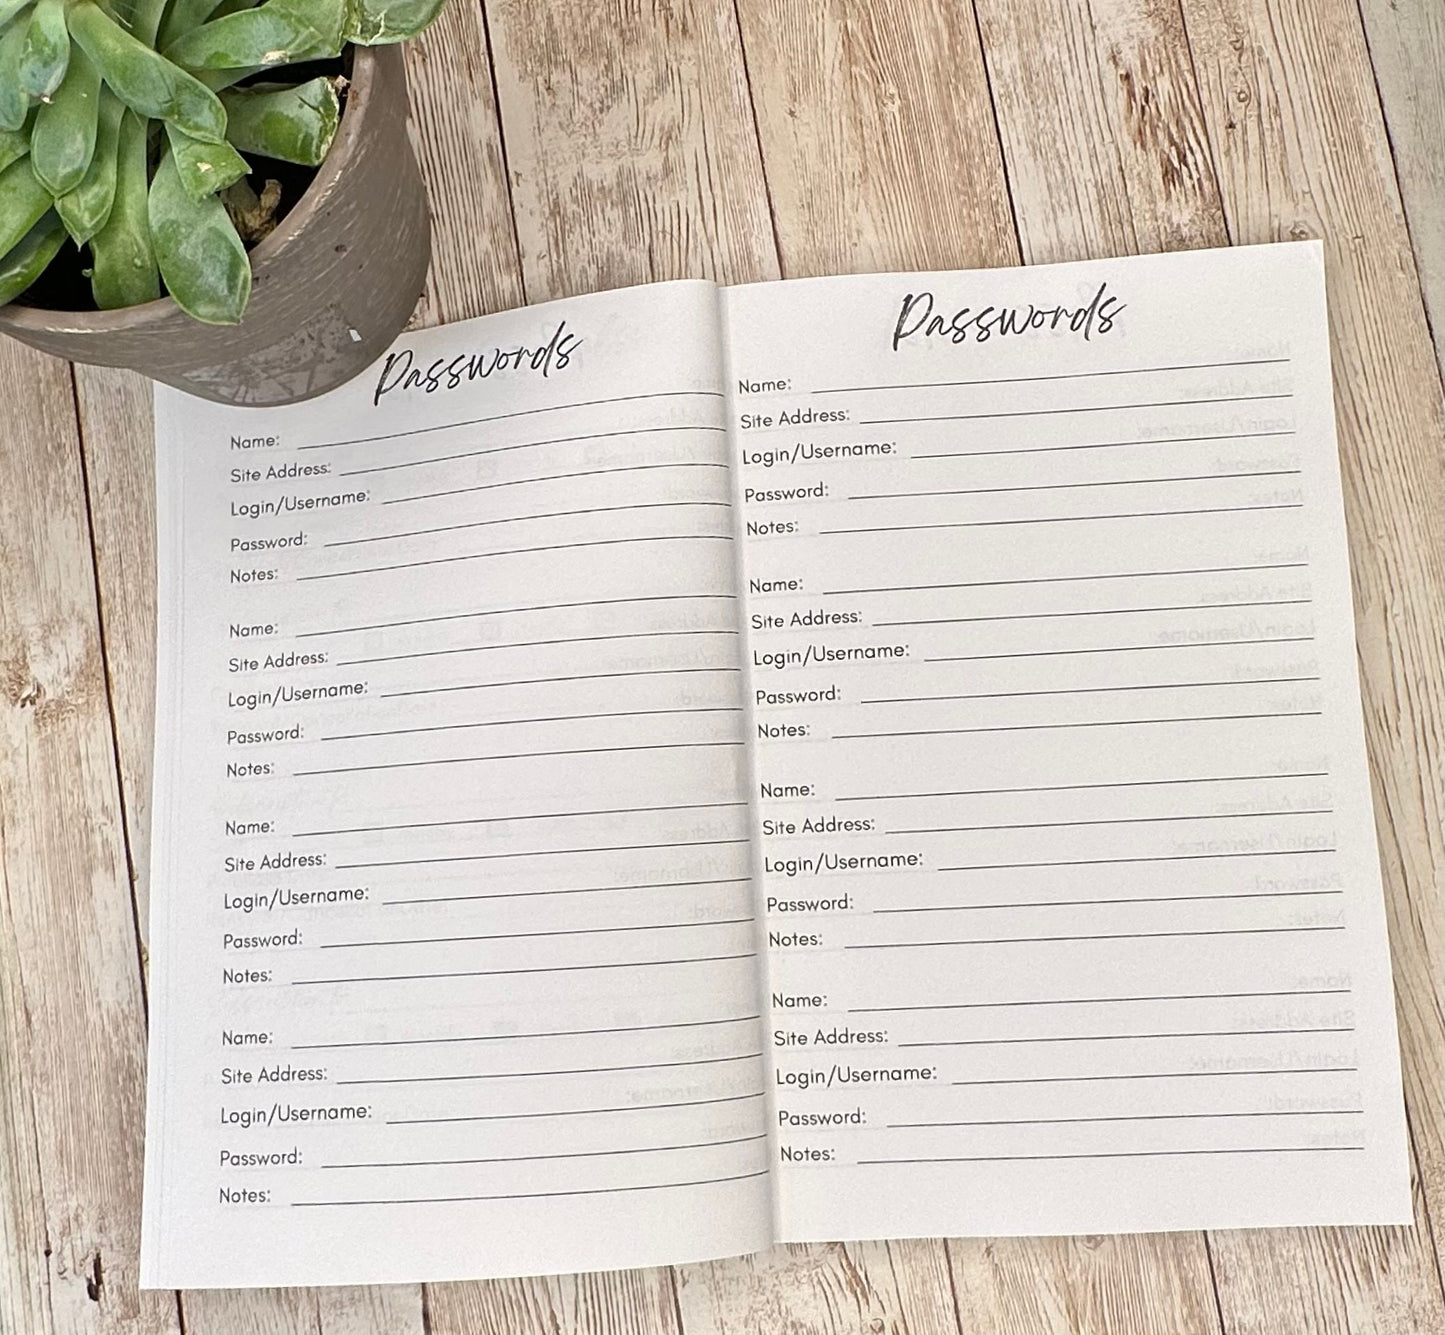 Passwords
Name:
Site Address:
Login/Username:
Password:
Notes:
Name:
Site Address:
Login/Username:
Password:
Notes:
Name:
Site Address:
Login/Username:
Password:
Notes:
Name:
Site Address:
Login/Username:
Password:
Notes:
Passwords
Name:
Site Address:
Login/Username:
Password:
Notes:
Name:
Site Address:
Login/Username:
Password:
Notes:
Name:
Site Address:
Login/Username:
Password:
Notes:
Name:
Site Address:
Login/Username:
Password:
Notes: